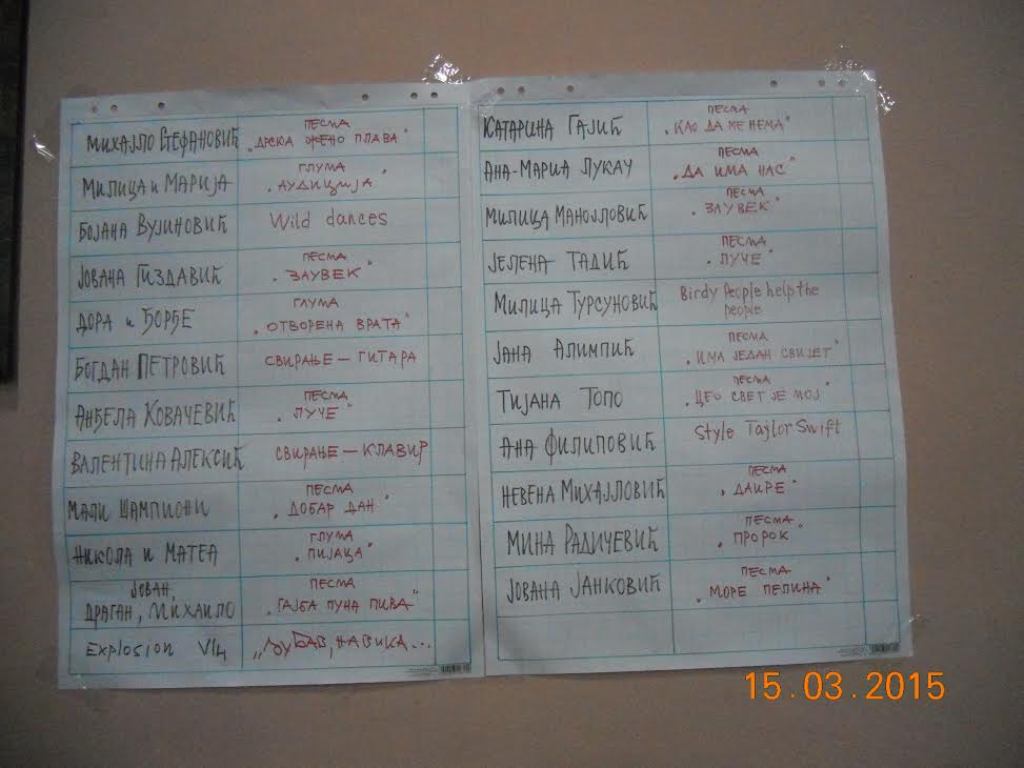 Михајло Стефановић
песма
„Дрска жено плава"
Милица и Марија
глума
„Аудиција"
Бојана Вујиновић
Wild dances
Јована Гиздавић
песма
„Заувек"
Дора и Ђорђе
глума
„Отворена врата"
Богдан Петровић
свирање – гитара
Анђела Ковачевић
песма
„Луче"
Валентина Алексић
свирање – клавир
Мали шампиони
песма
„Добар дан"
Никола и Матеа
глума
„Пијаца"
Јован,
Драган, Михаило
песма
„Гајба пуна пива"
Explosion VI4
„Љубав, навика...
Катарина Гајић
песма
„Као да ме нема"
Ана-Марија Лукач
песма
„Да има нас"
Милица Манојловић
песма
„Заувек"
Јелена Тадић
песма
„Луче"
Милица Турсуновић
Birdy People help the
people
Јана Алимпић
песма
„Има један свијет"
Тијана Топо
песма
„Цео свет је мој"
Ана Филиповић
Style Tajlor Swift
Невена Михајловић
песма
„Даире"
Мина Радичевић
песма
„Пророк"
Јована Јанковић
песма
„Море пелина"
15.03.2015